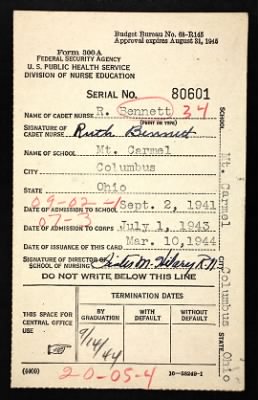 Budget Bureau No. 68-R145
Approval expires August 31, 1945
Form 300A
FEDERAL SECURITY AGENCY
U. S. PUBLIC HEALTH SERVICE
DIVISION OF NURSE EDUCATION
SERIAL No. 80601
NAME OF CADET NURSE R. Bennett 34
(PRINT OR TYPE)
SIGNATURE OF CADET NURSE Ruth Bennett
NAME OF SCHOOL Mt. Carmel
CITY Columbus
STATE Ohio
09-02-1
DATE OF ADMISSION TO SCHOOL Sept. 2, 1941
07-3
DATE OF ADMISSION TO CORPS July 1, 1943
DATE OF ISSUANCE OF THIS CARD Mar. 10, 1944
SIGNATURE OF DIRECTOR OF SCHOOL OF NURSING Sister M. Hilary R.N.
DO NOT WRITE BELOW THIS LINE
THIS SPACE FOR CENTRAL OFFICE USE
TERMINATION DATES
BY GRADUATION
WITH DEFAULT
WITHOUT DEFAULT
9/14/44
20-05-4
16-38249-1
SCHOOL Mt. Carmel
CITY Columbus
STATE Ohio